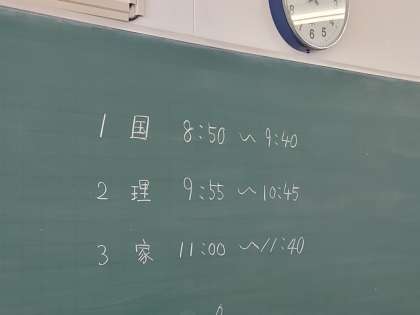 1 国 8:50 〜 9:40
2 理 9:55 〜 10:45
3 家 11:00 〜 11:40
6 5